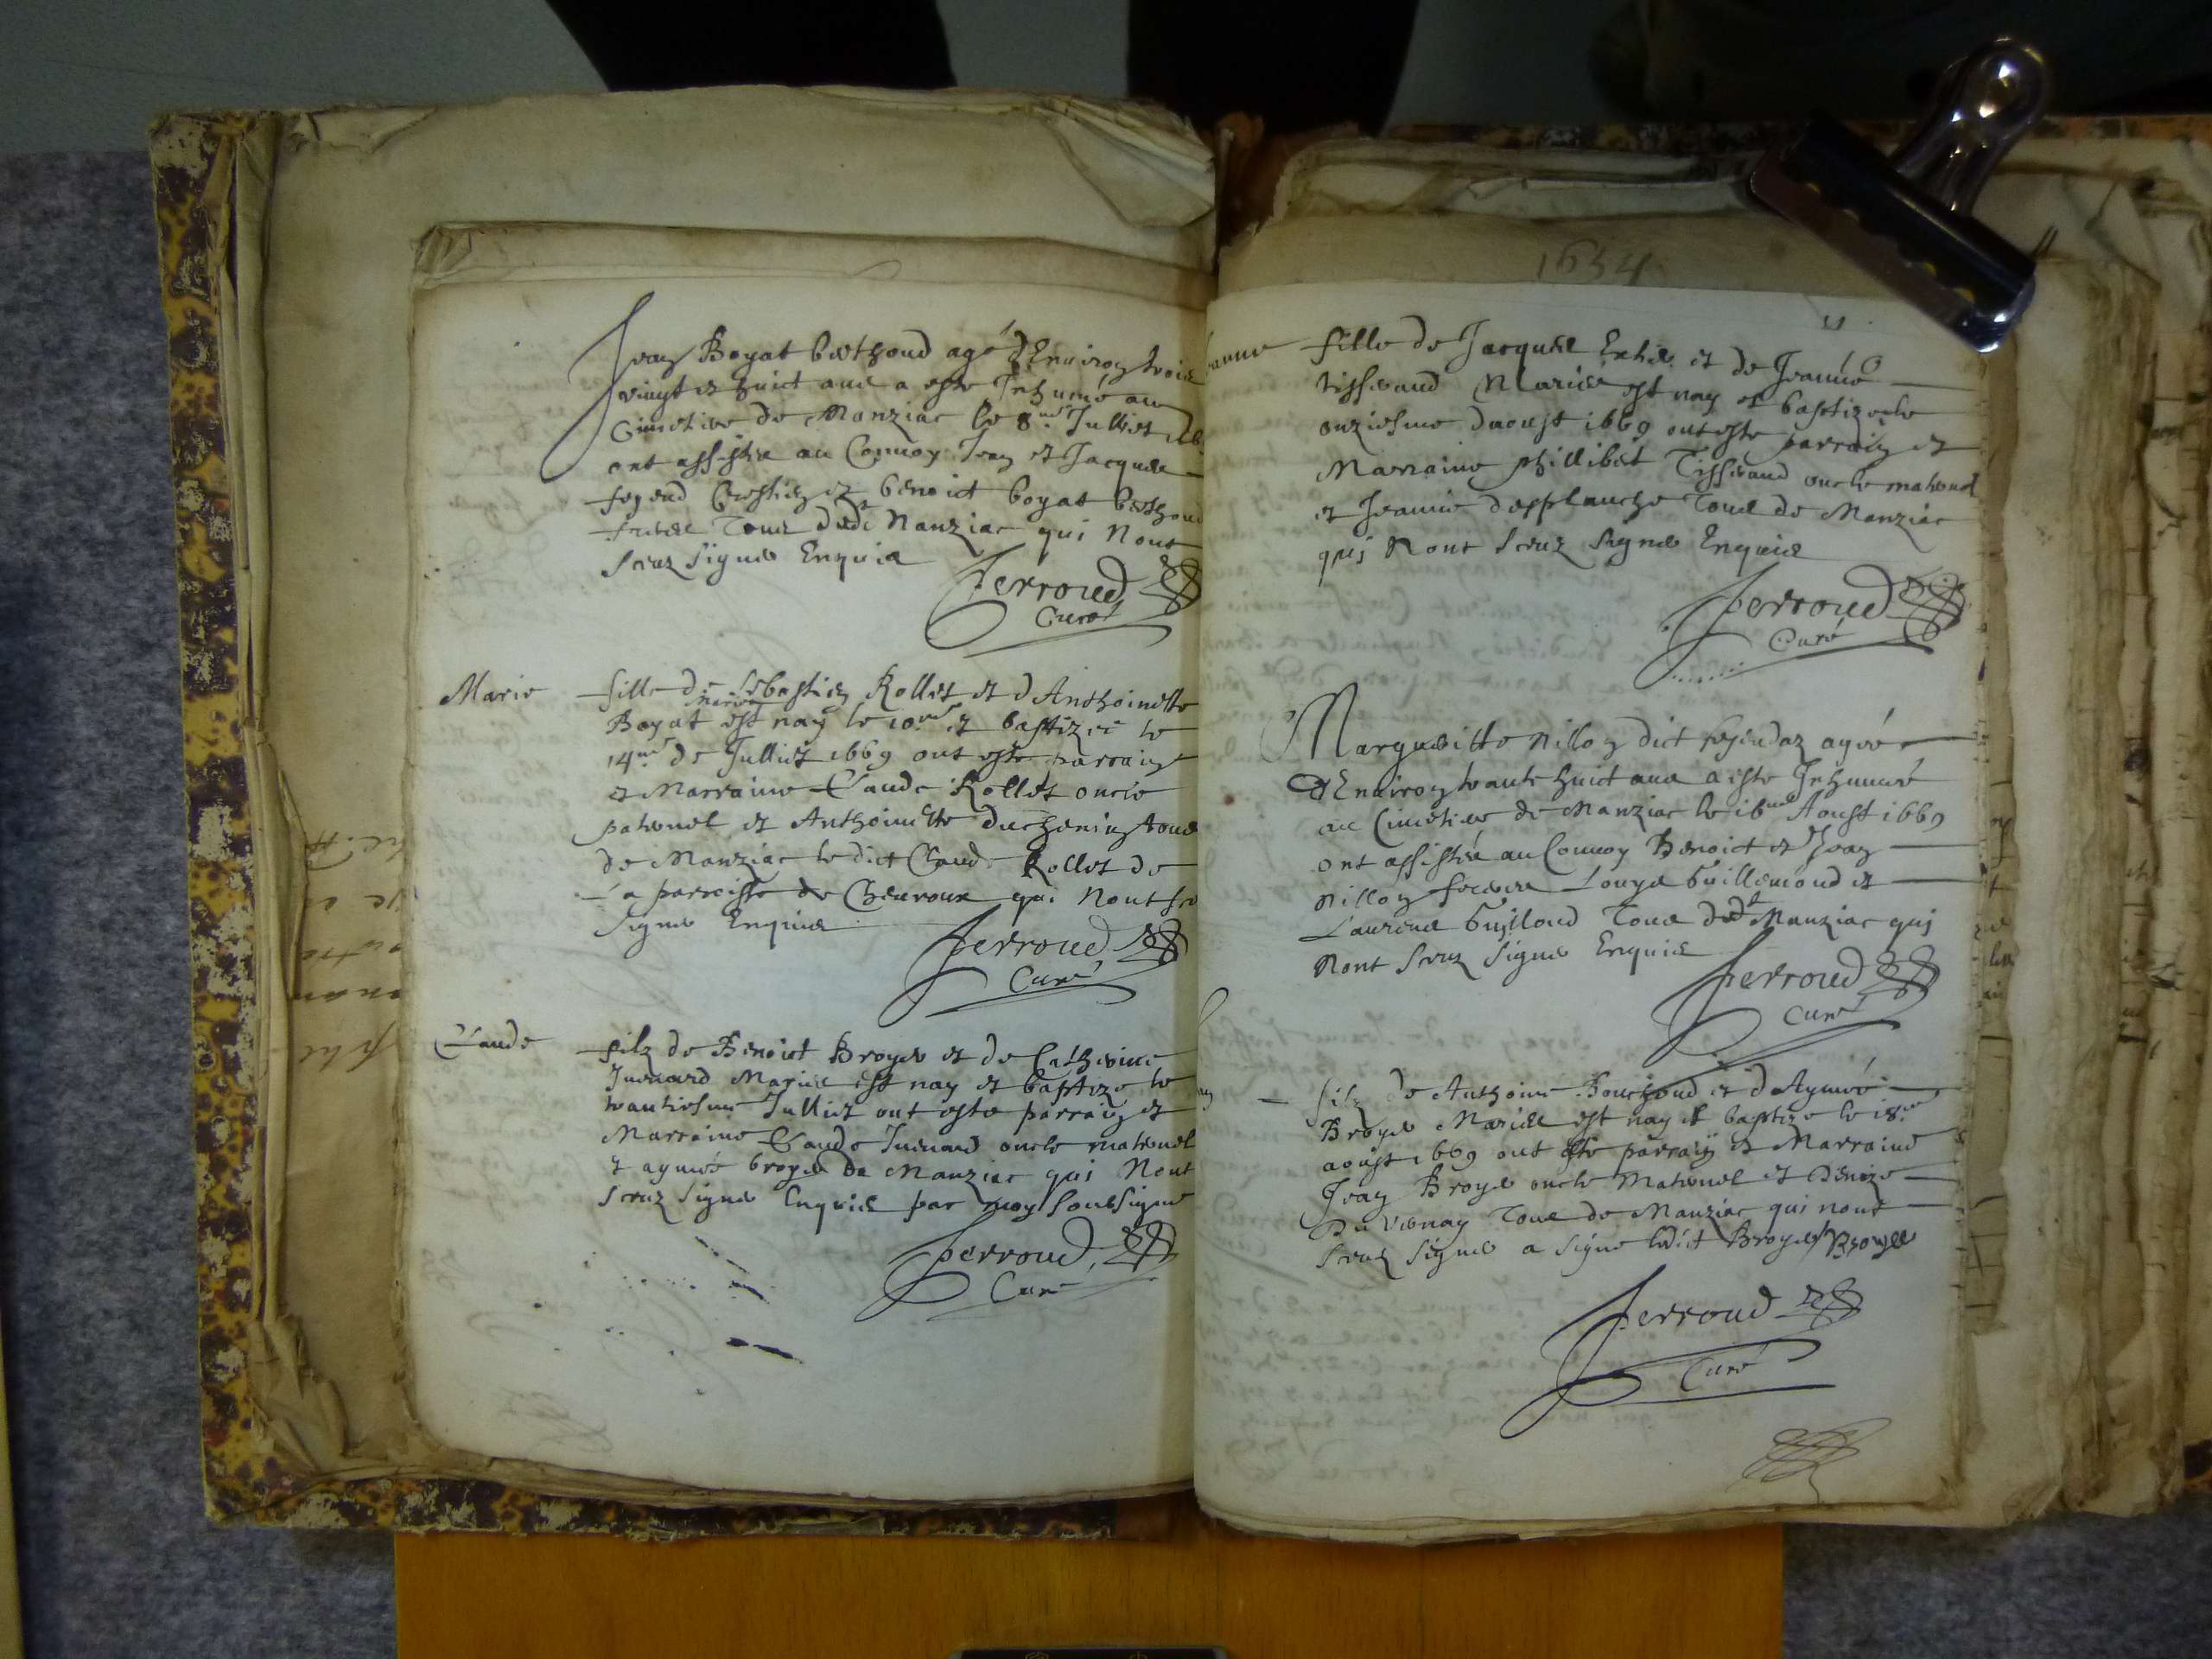 Jean Boyat berthoud agé d'Environ trois
vingt et huict ans a este Inhumé au
Cimetiere de Manziac le 8me Julliet
ont assistes au Convoy Jean et Jacques
benoict boyat berthoud
freres Tous dudt Manziac qui Nont
sceuz signer Enquis
Perroud
Curé
Marie
fille de Sebastien Rollet et d'Anthoinette
mariés
Boyat est nay le 10me et baptizée le
14me de Julliet 1669 ont este parrain
et Marraine Claude Rollet oncle
paternel et Anthoinette duchenin tous
de Manziac le dict Claude Rollet de
la parroisse de Chevroux qui Nont
signer Enquis
Perroud
Curé
Claude
filz de Benoict Broyer et de Catherine
Juenard Mariés est nay et baptize le
trantiesme Julliet ont este parrain et
Marraine Claude Juenard oncle maternel
et aymée broyer de Manziac qui Nont
sceuz signer Enquis par moy soussigne
Perroud
Curé
1654
11
Jeanne
fille de Jacques et de Jeanne
tisserand Mariés est nay et baptizée le
onziesme daoust 1669 ont este parrain et
Marraine phillibert Tisserand oncle maternel
et Jeanne desplanche Tous de Manziac
quj Nont sceuz signer Enquis
Perroud
Curé
Margueritte Nillon dict agée
d'Environ trante huict ans a este Inhumée
au Cimetiere de Manziac le 16me Aoust 1669
ont assistés au Convoy Benoict et Jean
Nillon freres Louys Guillemoud et
Laurens Guilloud Tous dudt Manziac quj
Nont sceuz signer Enquis
Perroud
Curé
filz de Anthoine Bouchoud et d'Aymée
Broyer Mariés est nay et baptize le 18me
aoust 1669 ont este parrain et Marraine
Jean Broyer oncle Maternel et Denize
Duvernay Tous de Manziac qui nont
sceuz signer a signe ledict Broyer Broyer
Perroud
Curé